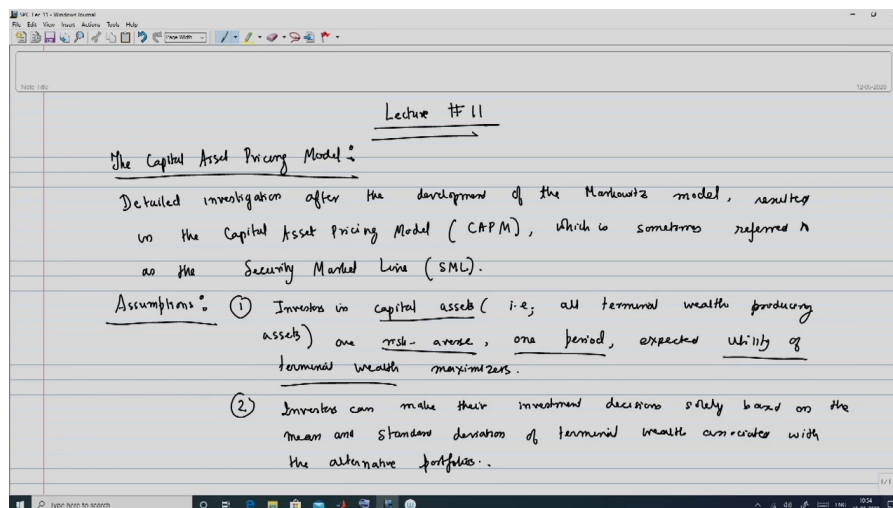 SPC Lec 11 - Windows Journal
File Edit View Insert Actions Tools Help
Page Width
Note Title
12-05-2020
Lecture # 11
The Capital Asset Pricing Model :
Detailed investigation after the development of the Markowitz model, resulted
in the Capital Asset Pricing Model (CAPM), which is sometimes referred
as the Security Market Line (SML).
Assumptions : ① Investors in capital assets (i.e; all terminal wealth producing
assets) are risk-averse, one period, expected utility of
terminal wealth maximizers.
② Investors can make their investment decisions solely based on the
mean and standard deviation of terminal wealth associated with
the alternative portfolios.
1/1
Type here to search
ENG
10:54